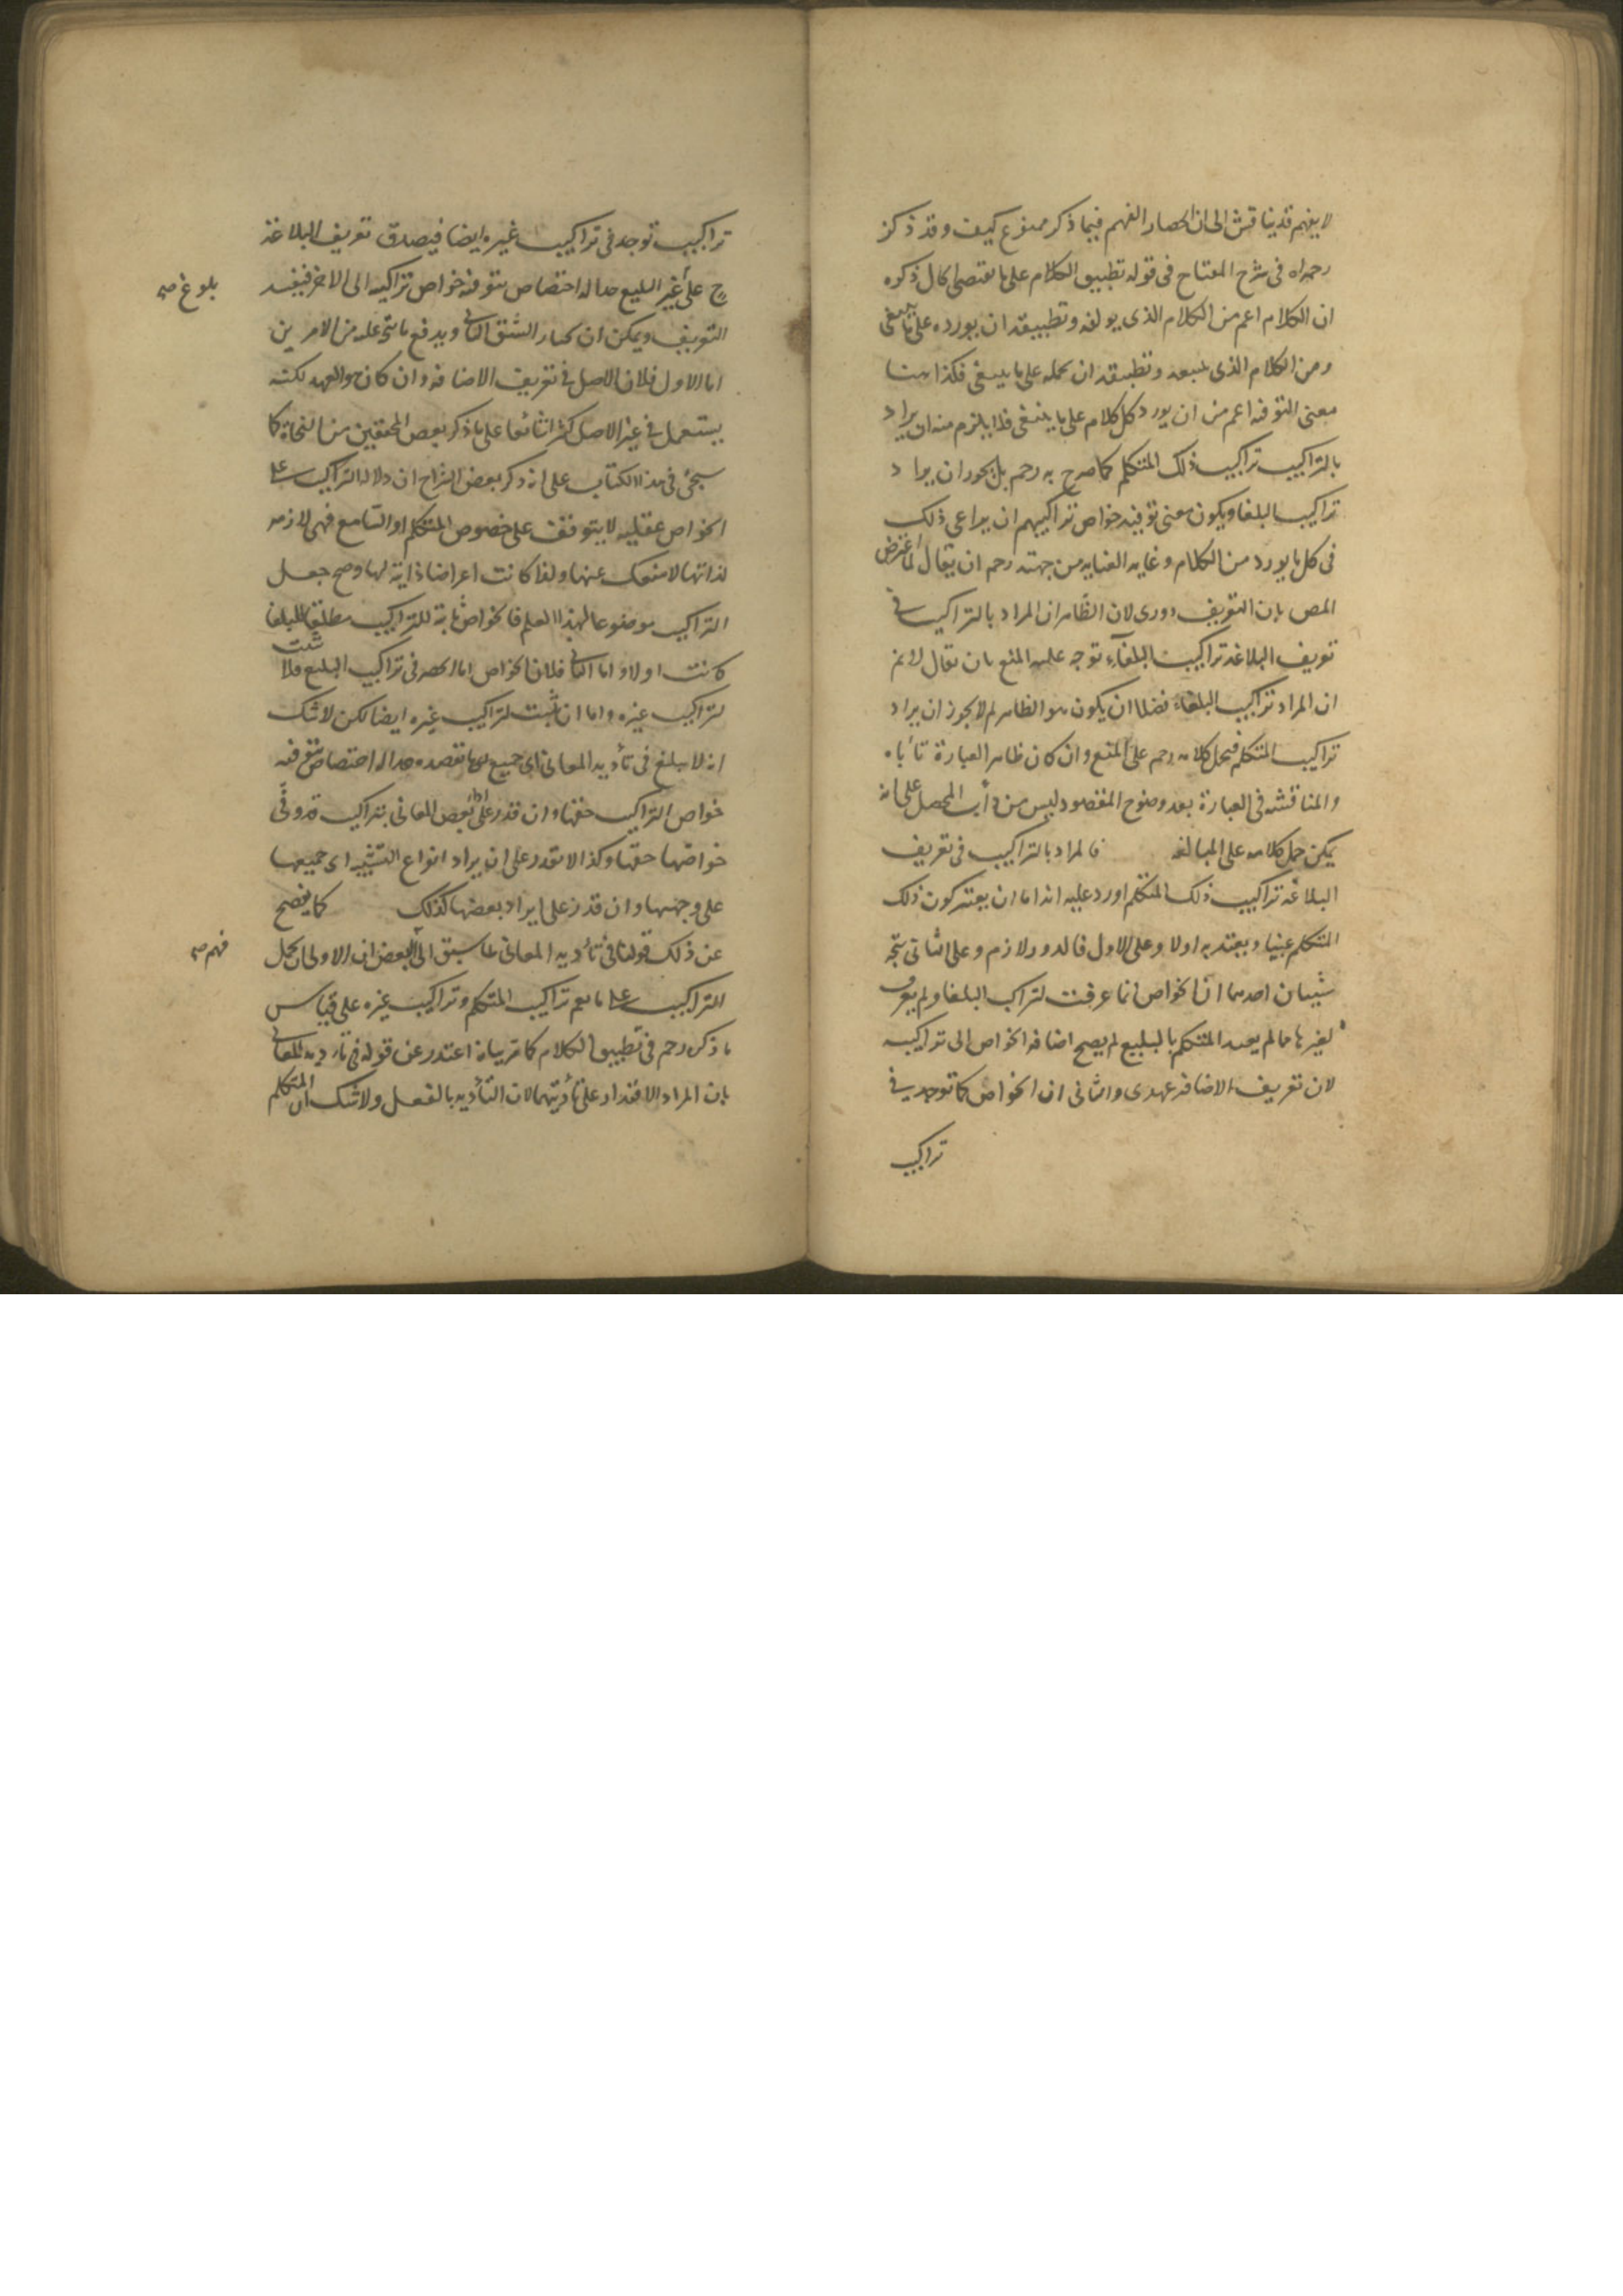 لا يفهم قد يناقش الى ان انحصار الفهم فيما ذكر ممنوع كيف وقد ذكر
رحمه اه فى شرح المفتاح فى قوله تطبيق الكلام على ما يقتضى الحال ذكره
ان الكلام اعم من الكلام الذى يولفه وتطبيقه ان يورده على ما ينبغى
ومن الكلام الذى يسمعه وتطبيقه ان يحمله على ما ينبغى فكذا هنا
معنى التوفية اعم من ان يورد كل كلام على ما ينبغى فلا يلزم منه ان يراد
بالتراكيب تراكيب ذلك المتكلم كما صرح به رحم بل يجوز ان يراد
تراكيب البلغا ويكون معنى توفيه خواص تراكيبهم ان يراعى ذلك
فى كل ما يورد من الكلام وغايه العنايه من جهته رحم ان يقال لما اعترض
المص بان التعريف دورى لان الظاهر ان المراد بالتراكيب فى
تعريف البلاغة تراكيب البلغآء توجه عليه المنع بان يقال لا نم
ان المراد تراكيب البلغاء فضلا ان يكون هو الظاهر لم لا يجوز ان يراد
تراكيب المتكلم فيحمل كلامه رحم على المنع وان كان ظاهر العبارة تأباه
والمناقشه فى العبارة بعد وضوح المقصود ليس من دأب المحصل على انه
يمكن حمل كلامه على المبالغه فالمراد بالتراكيب فى تعريف
البلاغة تراكيب ذلك المتكلم اورد عليه انه اما ان يعتبر كون ذلك
المتكلم بليغا ويعتد به اولا وعلى الاول فالدور لازم وعلى الثانى يتجه
شيئان احدهما ان الخواص انما عرفت لتراكيب البلغا ولم يعرف
لغيرها فما لم يعيد المتكلم بالبليغ لم يصح اضافه الخواص الى تراكيبه
لان تعريف الاضافه عهدى والثانى ان الخواص كما توجد فى
تراكيب
تراكيب توجد فى تراكيب غيره ايضا فيصدق تعريف البلاغة
ح على غير البليغ حدا له اختصاص بتوفية خواص تراكيبه الى الاخر فيفسد
بلوغ صح
التعريف ويمكن ان يختار الشق الثانى ويدفع ما يتجه عليه من الامرين
اما الاول فلان الاصل فى تعريف الاضافه وان كان هو العهد لكنه
يستعمل فى غير الاصل كثيرا شائعا على ما ذكر بعض المحققين من النحاة كما
سيجئ فى هذا الكتاب على انه ذكر بعض الشراح ان دلاله التراكيب على
الخواص عقليه لا يتوقف على خصوص المتكلم او السامع فهى لازمه
لذاتها لا ينفك عنها ولذا كانت اعراضا ذاتية لها وصح جعل
التراكيب موضوعا لهذا العلم فالخواص ثابتة للتراكيب مطلقا للبلغا
كانت او لا واما الثانى فلان الخواص اما انحصر فى تراكيب البليغ فلا
ثبت
لتراكيب غيره واما ان ثبت لتراكيب غيره ايضا لكن لا شك
انه لا يبلغ فى تأديه المعانى اى جميع ما يقصده حدا له اختصاص بتوفيه
خواص التراكيب حقها وان قدر على اداء بعض المعانى بتراكيب قد وفى
خواصها حقها وكذا لا يقدر على ان يراد انواع التشبيه اى جميعها
على وجهها وان قدر على ايراد بعضها كذلك كما يفصح
عن ذلك قولنا فى تأديه المعانى على ما سبق الى البعض ان الاولى ان يحمل
فهم صح
التراكيب على ما يعم تراكيب المتكلم وتراكيب غيره على قياس
ما ذكره رحم فى تطبيق الكلام كما مر بيانه اعتذر عن قوله فى تاديه المعانى
بان المراد الاقتدار على تأديتها لان التأديه بالفعل ولا شك ان المتكلم